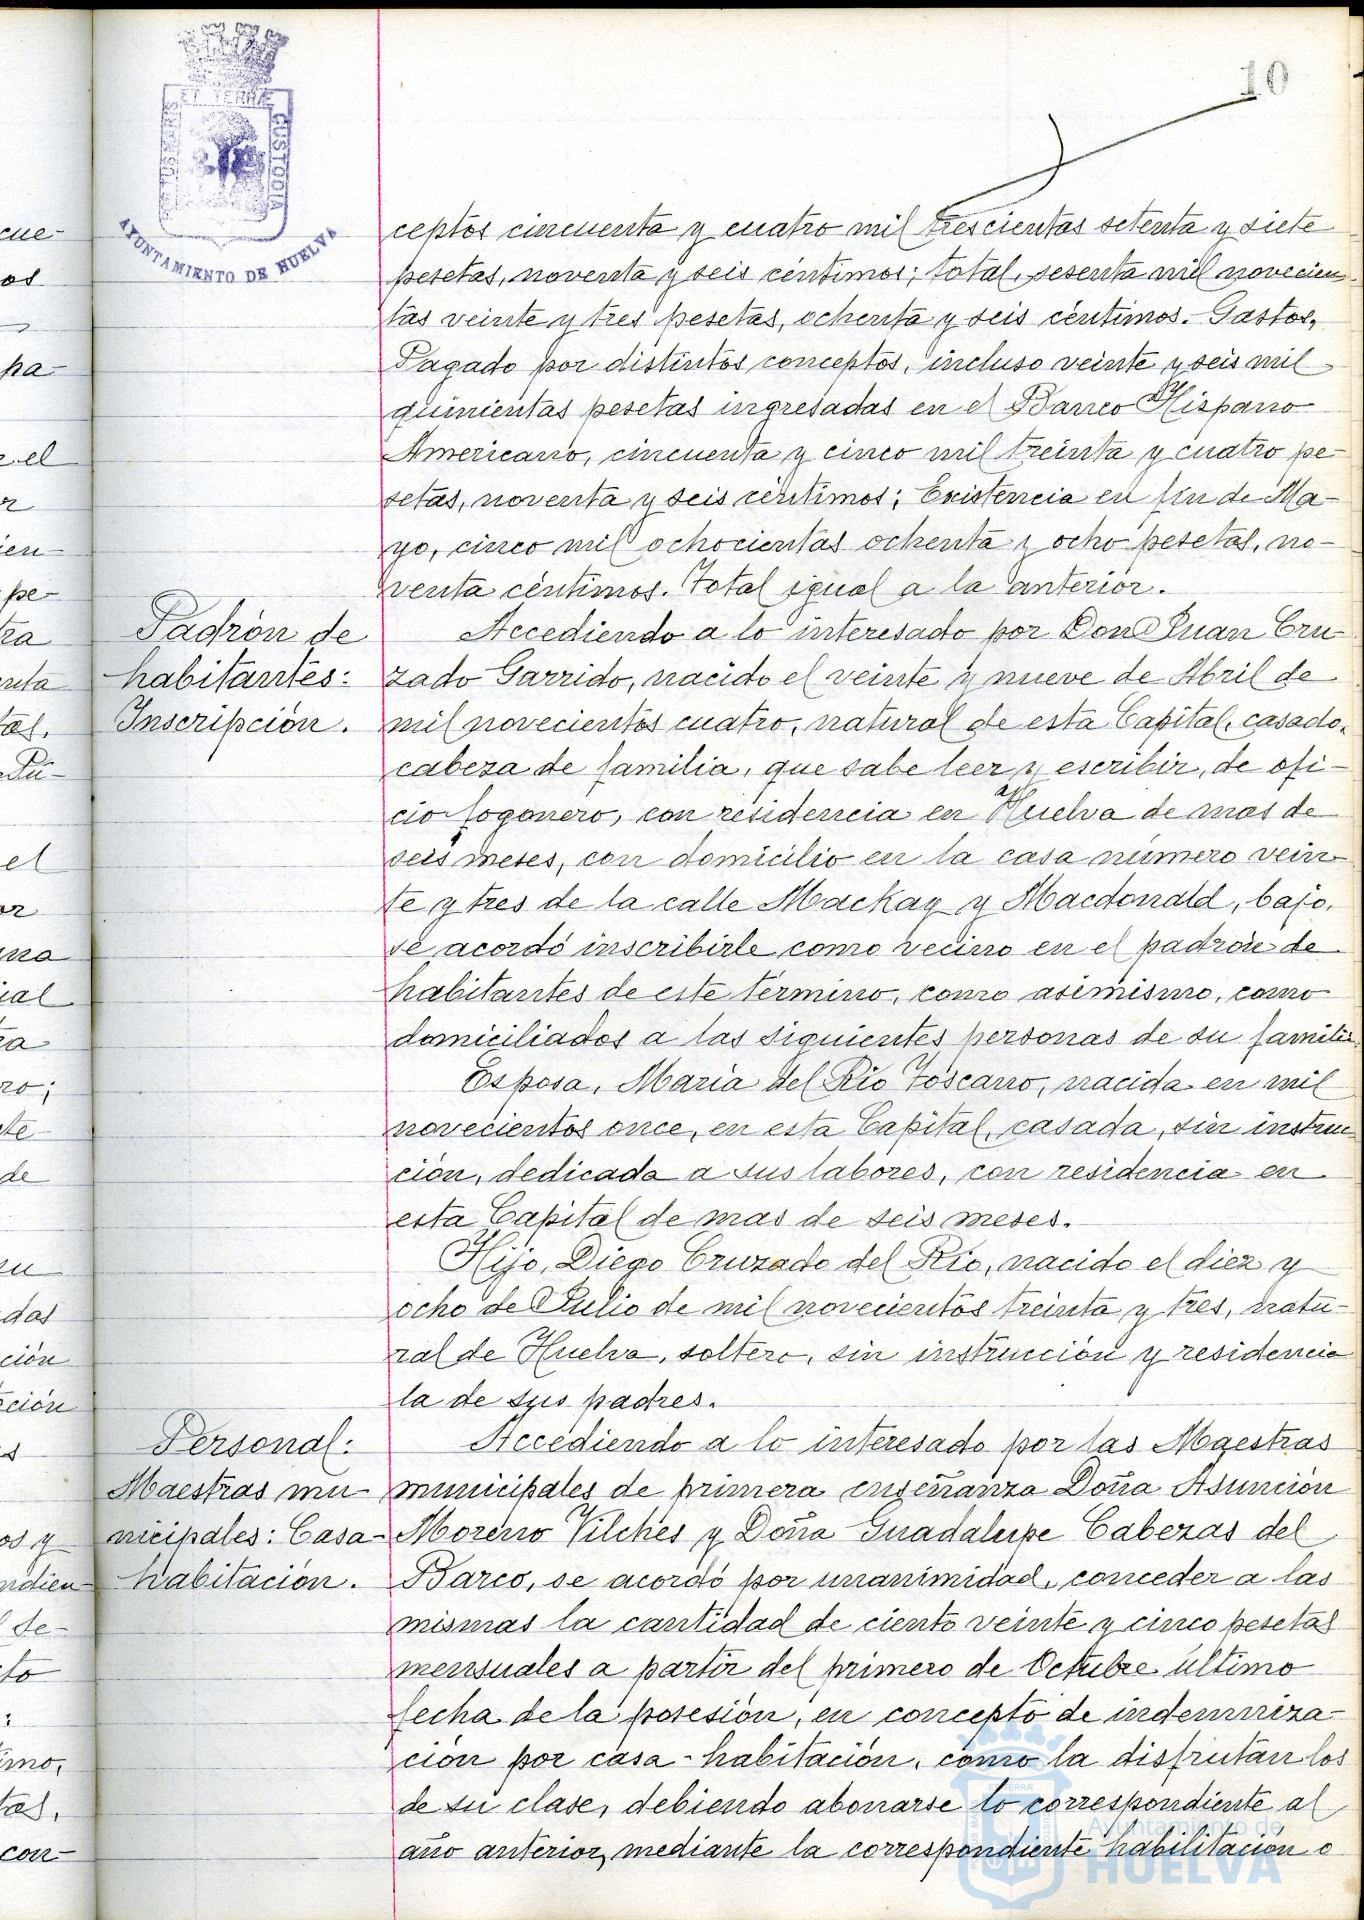 10
ET TERRÆ
PORTUS MARIS
CUSTODIA
AYUNTAMIENTO DE HUELVA
ceptos cincuenta y cuatro mil trescientas setenta y siete
pesetas, noventa y seis céntimos; total, sesenta mil novecien-
tas veinte y tres pesetas, ochenta y seis céntimos.- Gastos,
Pagado por distintos conceptos, incluso veinte y seis mil
quinientas pesetas ingresadas en el Banco Hispano
Americano, cincuenta y cinco mil treinta y cuatro pe-
setas, noventa y seis céntimos; Existencia en fin de Ma-
yo, cinco mil ochocientas ochenta y ocho pesetas, no-
venta céntimos. Total igual a la anterior.
Padrón de
habitantes:
Inscripción.
Accediendo a lo interesado por Don Juan Cru-
zado Garrido, nacido el veinte y nueve de Abril de
mil novecientos cuatro, natural de esta Capital, casado,
cabeza de familia, que sabe leer y escribir, de ofi-
cio fogonero, con residencia en Huelva de mas de
seis meses, con domicilio en la casa número vein-
te y tres de la calle Mackay y Macdonald, bajo,
se acordó inscribirle como vecino en el padrón de
habitantes de este término, como asimismo, como
domiciliados a las siguientes personas de su familia.
Esposa, María del Rio Toscano, nacida en mil
novecientos once, en esta Capital, casada, sin instruc-
ción, dedicada a sus labores, con residencia en
esta Capital de mas de seis meses.
Hijo, Diego Cruzado del Rio, nacido el diez y
ocho de Julio de mil novecientos treinta y tres, natu-
ral de Huelva, soltero, sin instrucción y residencia
la de sus padres.
Personal:
Maestras mu-
nicipales: Casa-
habitación.
Accediendo a lo interesado por las Maestras
municipales de primera enseñanza Doña Asunción
Moreno Vilches y Doña Guadalupe Cabezas del
Barco, se acordó por unanimidad, conceder a las
mismas la cantidad de ciento veinte y cinco pesetas
mensuales a partir del primero de Octubre último
fecha de la posesión, en concepto de indemniza-
ción por casa-habitación, como la disfrutan los
de su clase, debiendo abonarse lo correspondiente al
año anterior, mediante la correspondiente habilitacion o
Ayuntamiento de
HUELVA